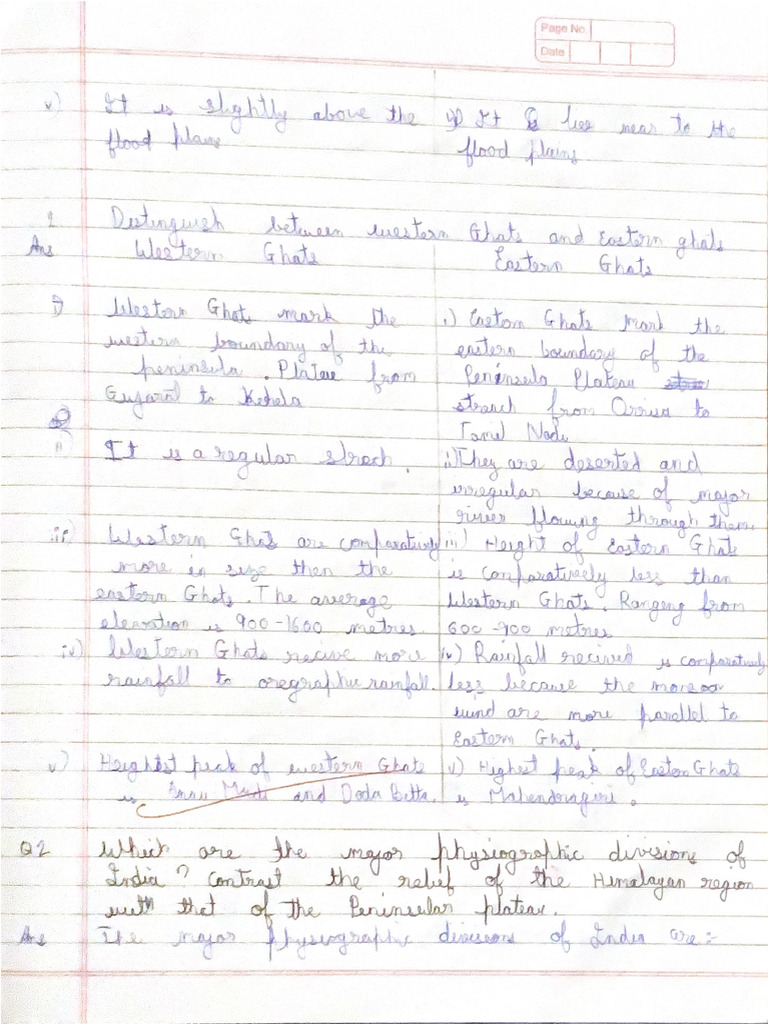 Page No.
Date
v) It is slightly above the flood plains
v) It lies near to the flood plains
Distinguish between western Ghats and Eastern ghats
Ans Western Ghats
Eastern Ghats
i) Western Ghats mark the
western boundary of the
peninsula. Platau from
Gujarat to Kehela
i) Eastorn Ghats mark the
eastern boundary of the
Peninsula Plateau
streach from Orrisa to
Tamil Nadu
ii) It is a regular strech.
ii) They are deserted and
irregular because of major
rivier flowing through them
iii) Western Ghats are comparatively
more in size then the
eastern Ghats. The average
elevation is 900-1600 metres.
iii) Height of Eastern Ghats
is comparatively less than
Western Ghats. Ranging from
600-900 metres
iv) Western Ghats recive more
rainfall to oregraphic rainfall.
iv) Rainfall recived is comparatively
less because the monsoon
wind are more parallel to
Eastern Ghats.
v) Heighest peak of western Ghats
is Anai Mudi and Doda Betta.
v) Highest peak of Easton Ghats
is Mahendragiri.
Q2 Which are the major physiographic divisions of
India? Contrast the relief of the Himalayan region
with that of the Peninsular plateau.
Ans The major physiographic divisions of India are:-